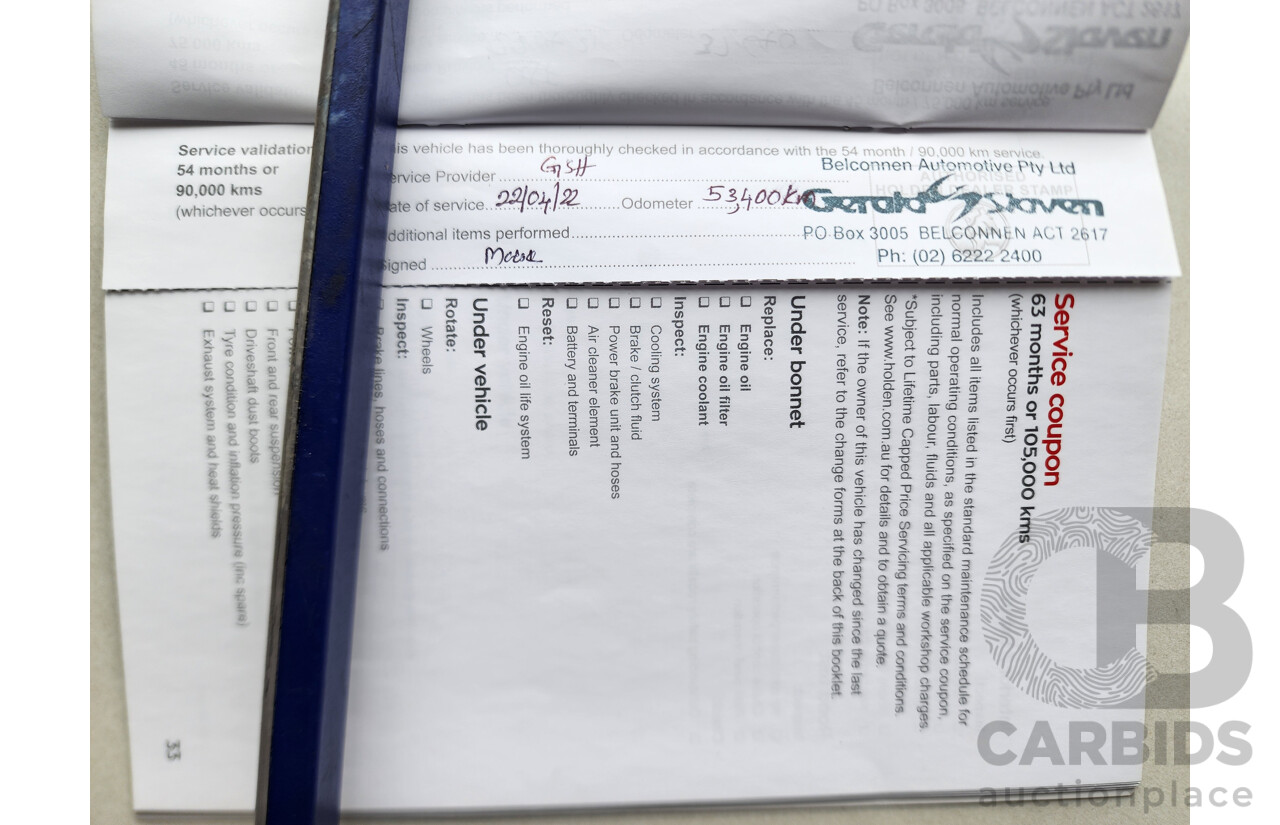 Service validation
54 months or
90,000 kms
(whichever occurs
his vehicle has been thoroughly checked in accordance with the 54 month / 90,000 km service.
ervice Provider GSH
ate of service 22/04/22 Odometer 53,400 km
dditional items performed
igned
Belconnen Automotive Pty Ltd
AUTHORISED
HOLDEN DEALER STAMP
Gerald Slaven
PO Box 3005 BELCONNEN ACT 2617
Ph: (02) 6222 2400
Service coupon
63 months or 105,000 kms
(whichever occurs first)
Includes all items listed in the standard maintenance schedule for
normal operating conditions, as specified on the service coupon,
including parts, labour, fluids and all applicable workshop charges.
*Subject to Lifetime Capped Price Servicing terms and conditions.
See www.holden.com.au for details and to obtain a quote.
Note: If the owner of this vehicle has changed since the last
service, refer to the change forms at the back of this booklet.
Under bonnet
Replace:
❑ Engine oil
❑ Engine oil filter
❑ Engine coolant
Inspect:
❑ Cooling system
❑ Brake / clutch fluid
❑ Power brake unit and hoses
❑ Air cleaner element
❑ Battery and terminals
Reset:
❑ Engine oil life system
Under vehicle
Rotate:
❑ Wheels
Inspect:
❑ Brake lines, hoses and connections
❑ Front and rear suspension
❑ Driveshaft dust boots
❑ Tyre condition and inflation pressure (inc spare)
❑ Exhaust system and heat shields
33
CARBIDS
auctionplace